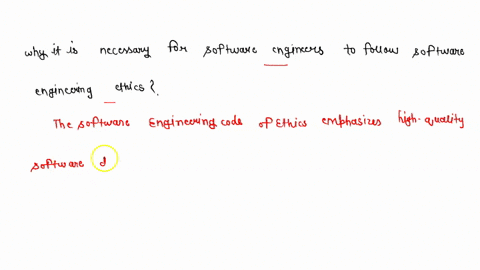 why it is necessary for software engineers to follow software
engineering ethics?.
The software Engineering code of Ethics emphasizes high-quality
software d